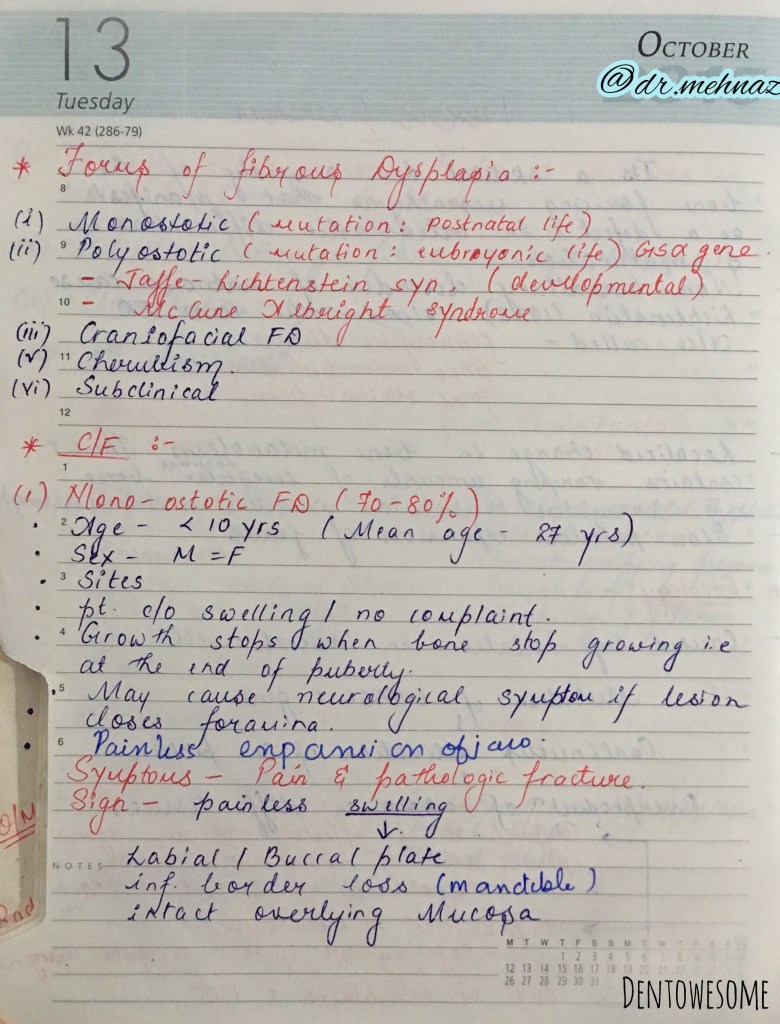 13
OCTOBER
@dr.mehnaz
Tuesday
Wk 42 (286-79)
* Forms of fibrous Dysplasia :-
8
(i) Monostotic (mutation: postnatal life)
(ii) 9 Polyostotic (mutation: embroyonic life) GSα gene.
- Jaffe-Lichtenstein syn. (developmental)
10 - Mc Cune Albright syndrome
(iii) Craniofacial FD
(v) 11 Cherubism.
(vi) Subclinical
12
* C/F :-
1
(1) Mono-ostotic FD (70-80%)
• 2 Age - < 10 yrs (Mean age - 27 yrs)
• Sex - M = F
• 3 Sites
• pt. c/o swelling / no complaint.
• 4 Growth stops when bone stop growing i.e
at the end of puberty.
• 5 May cause neurological symptom if lesion
closes foramina.
• 6 Painless expansion of jaw.
Symptoms - Pain & pathologic fracture.
Sign - painless swelling
↓
O/M
NOTES Labial / Buccal plate
inf. border loss (mandible)
2nd
intact overlying Mucosa
M T W T F S S M T W T F S S
1 2 3 4 5 6 7 8 9
12 13 14 15 16 17 18 19 20
26 27 28 29 30 31
DENTOWESOME